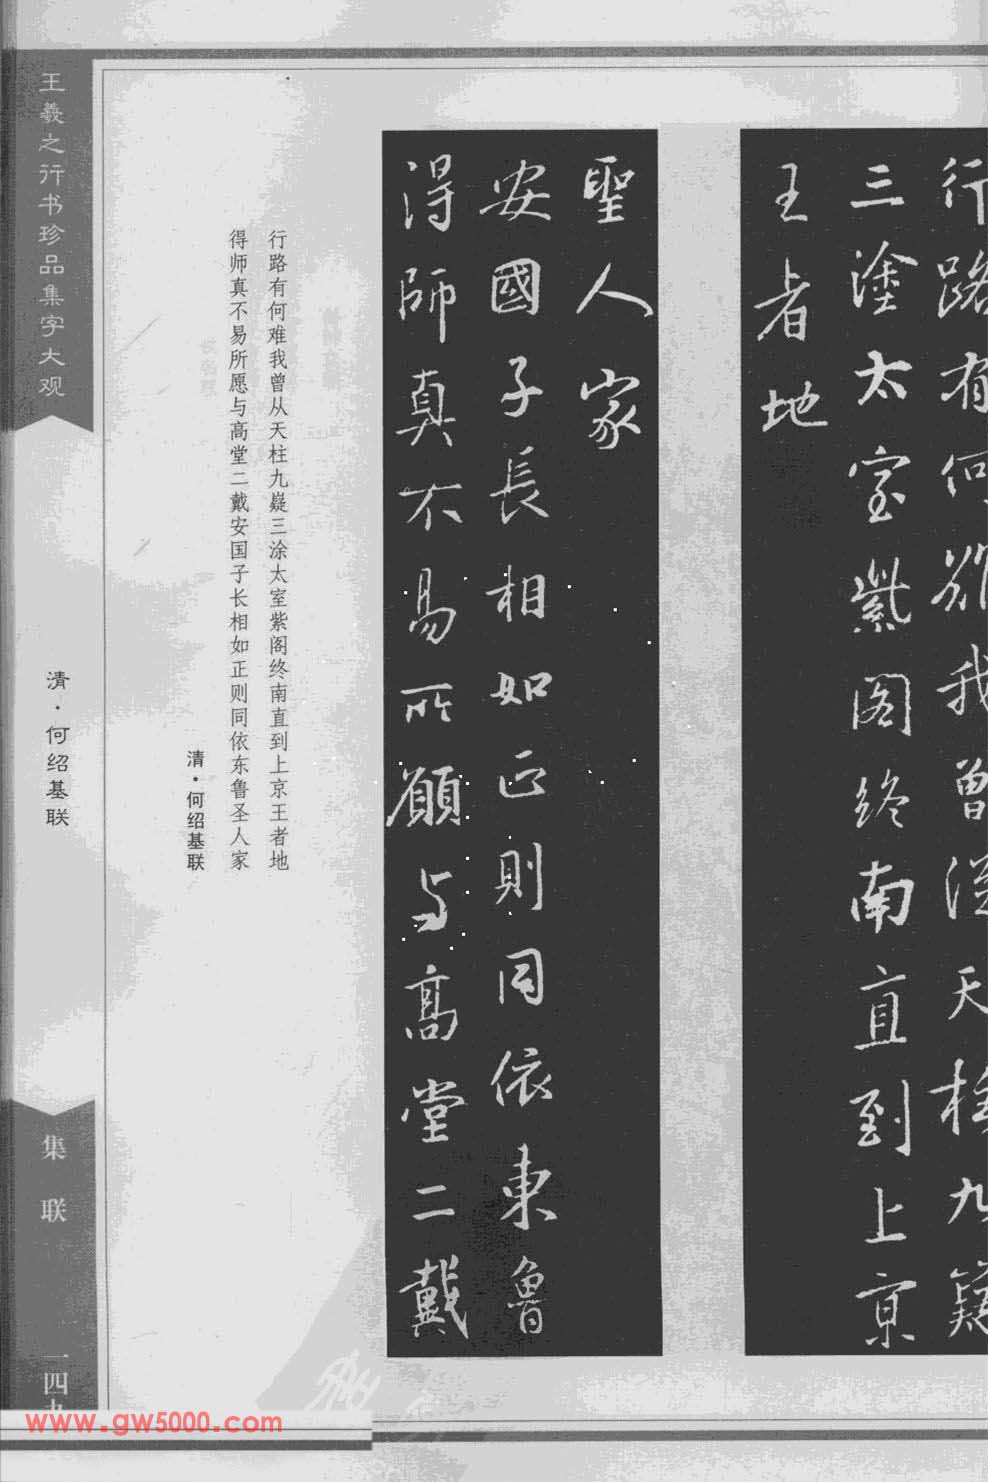 行路有何難我曾從天柱九疑
三塗太室紫閣終南直到上京
王者地
得師真不易所願与高堂二戴
安國子長相如正則同依東魯
聖人家
行路有何难我曾从天柱九嶷三涂太室紫阁终南直到上京王者地
得师真不易所愿与高堂二戴安国子长相如正则同依东鲁圣人家
清·何绍基联
王羲之行书珍品集字大观
清·何绍基联
集联
一四九
www.gw5000.com